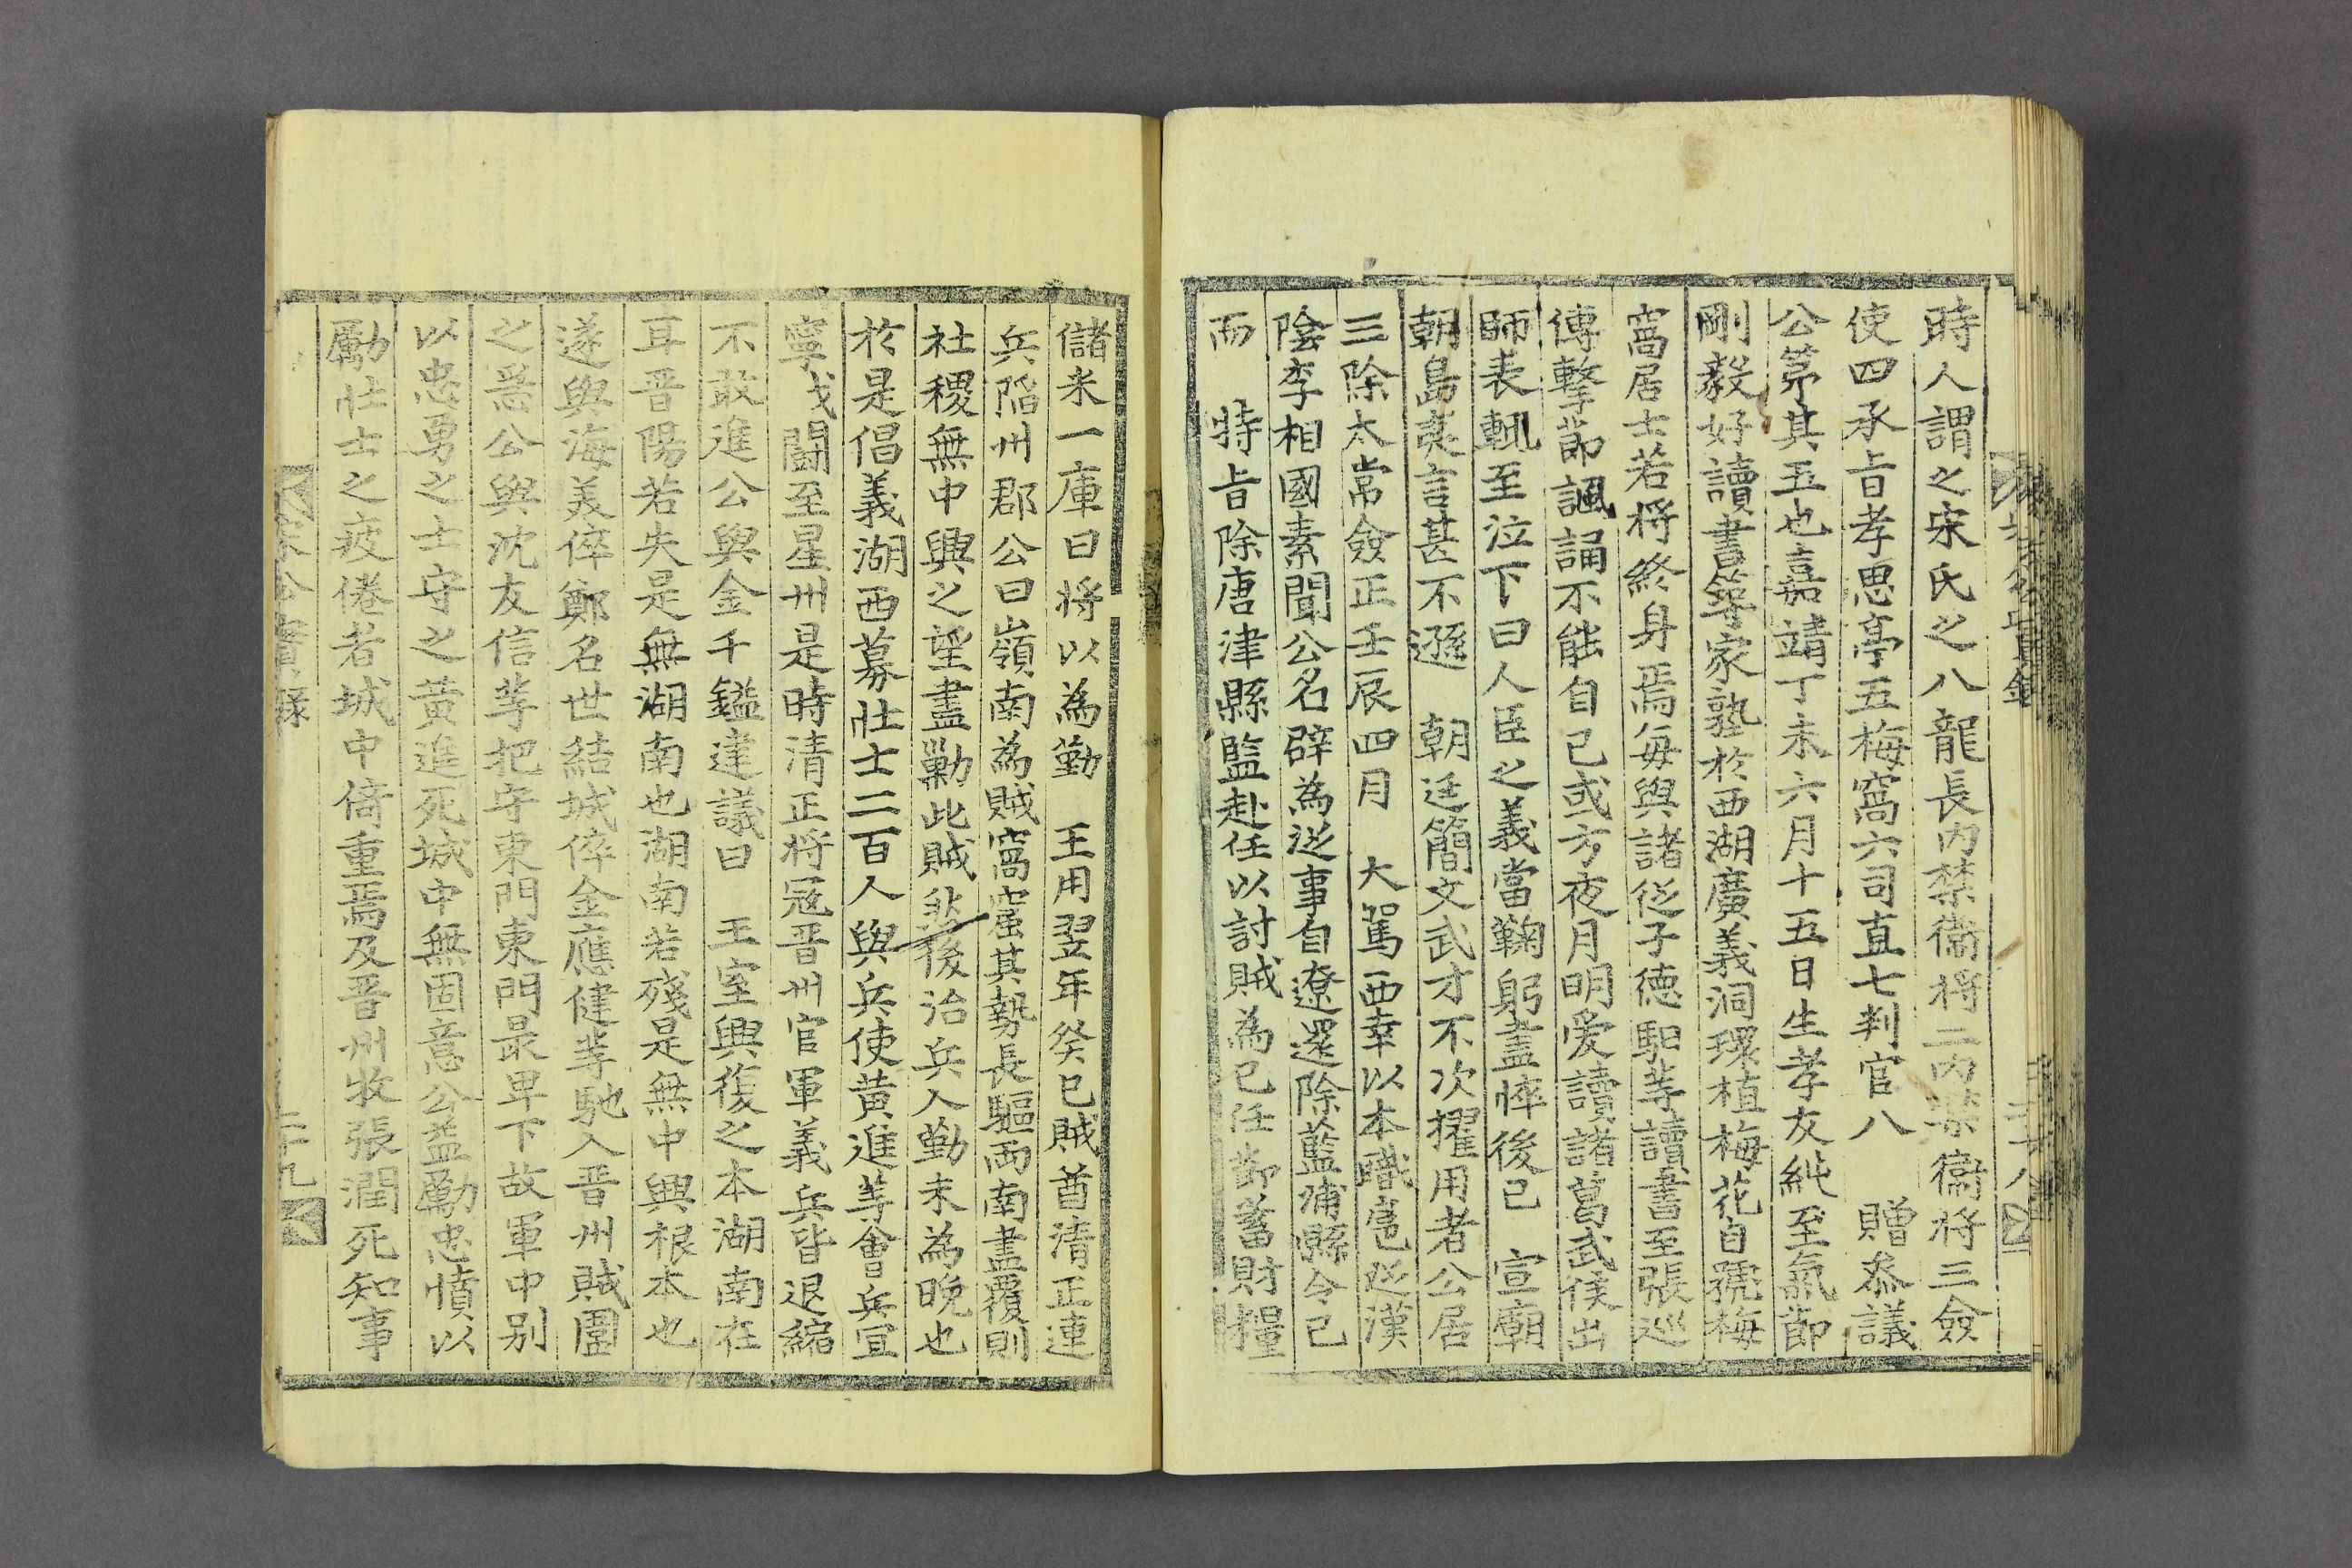 時人謂之宋氏之八龍長內禁衞將二內禁衞將三僉
使四承旨孝思亭五梅窩六司直七判官八 贈叅議
公苐其五也嘉靖丁未六月十五日生孝友純至氣節
剛毅好讀書築家塾於西湖廣義洞環植梅花自號梅
窩居士若將終身焉每與諸從子德馹等讀書至張巡
傳擊節諷誦不能自已或方夜月明爰讀諸葛武侯出
師表輒至泣下曰人臣之義當鞠躬盡悴後已 宣廟
朝島夷言甚不遜 朝廷簡文武才不次擢用者公居
三除太常僉正壬辰四月 大駕西幸以本職扈從漢
陰李相國素聞公名辟為從事自遼還除藍浦縣令已
而 特旨除唐津縣監赴任以討賊為己任節蓄財糧
儲米一庫曰將以為勤 王用翌年癸巳賊酋清正連
兵陷州郡公曰嶺南為賊窩窟其勢長驅兩南盡覆則
社稷無中興之望盡勦此賊然後治兵入勤未為晩也
於是倡義湖西募壯士二百人與兵使黃進等會兵宣
寧戈鬪至星州是時清正將冦晋州官軍義兵皆退縮
不敢進公與金千鎰建議曰 王室興復之本湖南在
耳晋陽若失是無湖南也湖南若殘是無中興根本也
遂與海美倅鄭名世結城倅金應健等馳入晋州賊圍
之急公與沈友信等把守東門東門最卑下故軍中別
以忠勇之士守之黃進死城中無固意公益勵忠憤以
勵壯士之疲倦者城中倚重焉及晋州牧張潤死知事
宋公實錄 二十九